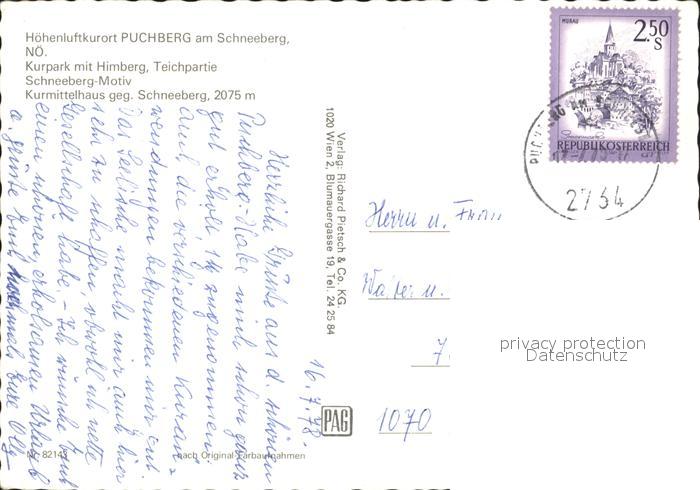 Höhenluftkurort PUCHBERG am Schneeberg,
NÖ.
Kurpark mit Himberg, Teichpartie
Schneeberg-Motiv
Kurmittelhaus geg. Schneeberg, 2075 m
MURAU
2.50
S
REPUBLIK ÖSTERREICH
2734
Verlag: Richard Pietsch & Co. KG.
1020 Wien 2, Blumauergasse 19, Tel. 24 25 84
16.7.78.
Herzliche Grüße aus d. schönen
Puchberg. Habe mich schon ganz
gut erholt, zugenommen.
Auch die verschiedenen Kuran-
wendungen bekommen mir gut
Das Seelische macht mir auch hier
sehr zu schaffen, obwohl ich nette
Gesellschaft habe. - Ich wünsche Euch
einen schönen, erholsamen Urlaub
Herrn u. Frau
u.
7.
1070
PAG
Nr. 82143
nach Original-Farbaufnahmen
privacy protection
Datenschutz